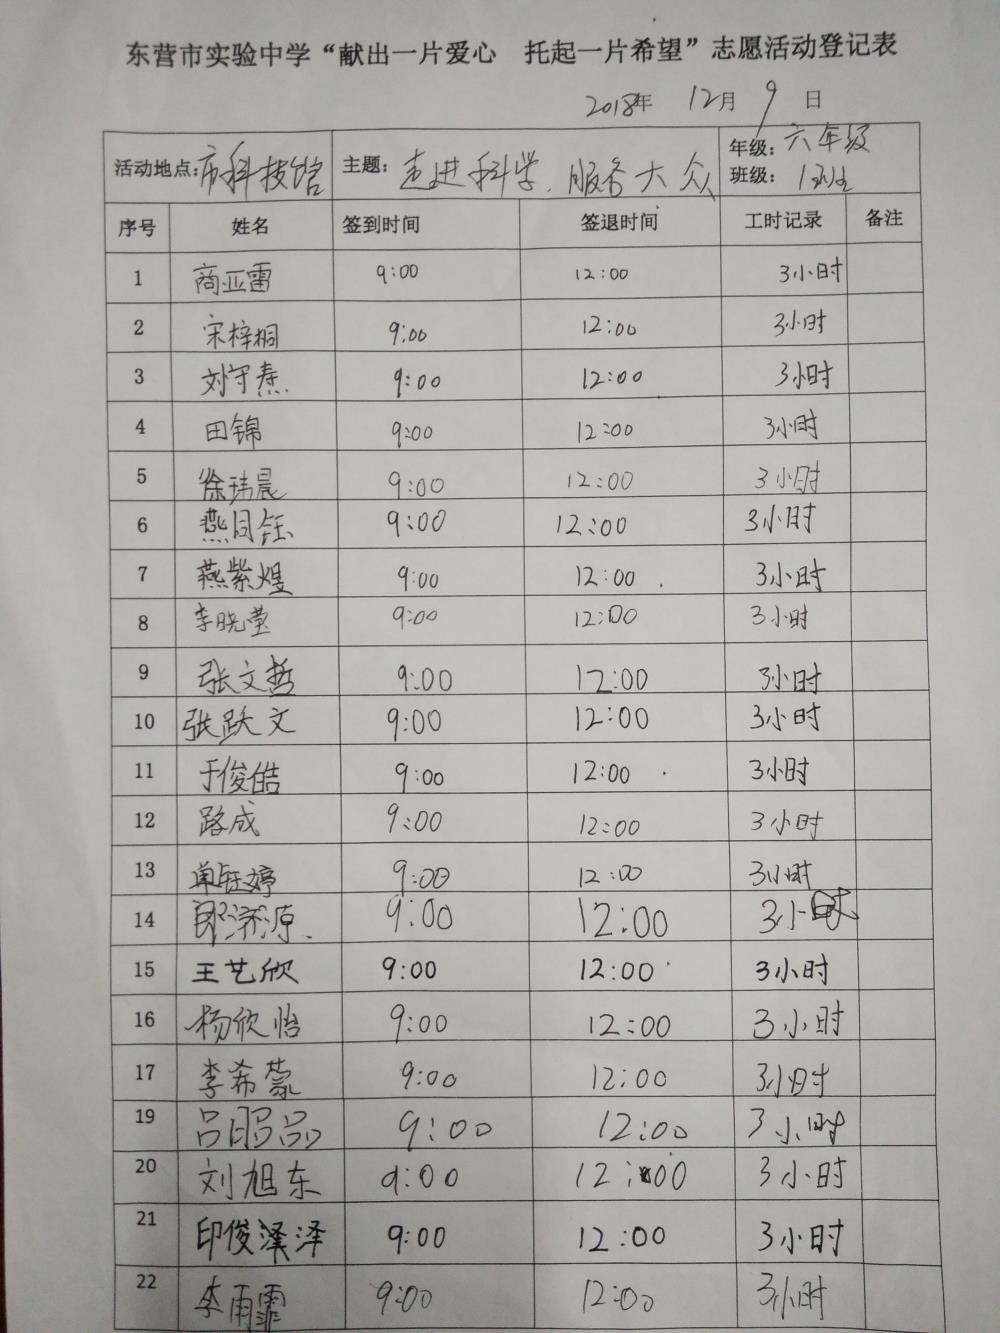 东营市实验中学“献出一片爱心 托起一片希望”志愿活动登记表
2018年 12月 9日
活动地点:市科技馆 主题: 走进科学、服务大众 年级: 六年级
班级: 1班
序号 姓名 签到时间 签退时间 工时记录 备注
1 商亚雷 9:00 12:00 3小时
2 宋梓桐 9:00 12:00 3小时
3 刘守焘 9:00 12:00 3小时
4 田锦 9:00 12:00 3小时
5 徐玮晨 9:00 12:00 3小时
6 燕同钰 9:00 12:00 3小时
7 燕紫煜 9:00 12:00 3小时
8 李晓莹 9:00 12:00 3小时
9 张文哲 9:00 12:00 3小时
10 张跃文 9:00 12:00 3小时
11 于俊皓 9:00 12:00 3小时
12 路成 9:00 12:00 3小时
13 单钰婷 9:00 12:00 3小时
14 9:00 12:00 3小时
15 王艺欣 9:00 12:00 3小时
16 杨欣怡 9:00 12:00 3小时
17 李希蒙 9:00 12:00 3小时
19 吕昭品 9:00 12:00 3小时
20 刘旭东 9:00 12:00 3小时
21 印俊泽 9:00 12:00 3小时
22 李雨霏 9:00 12:00 3小时